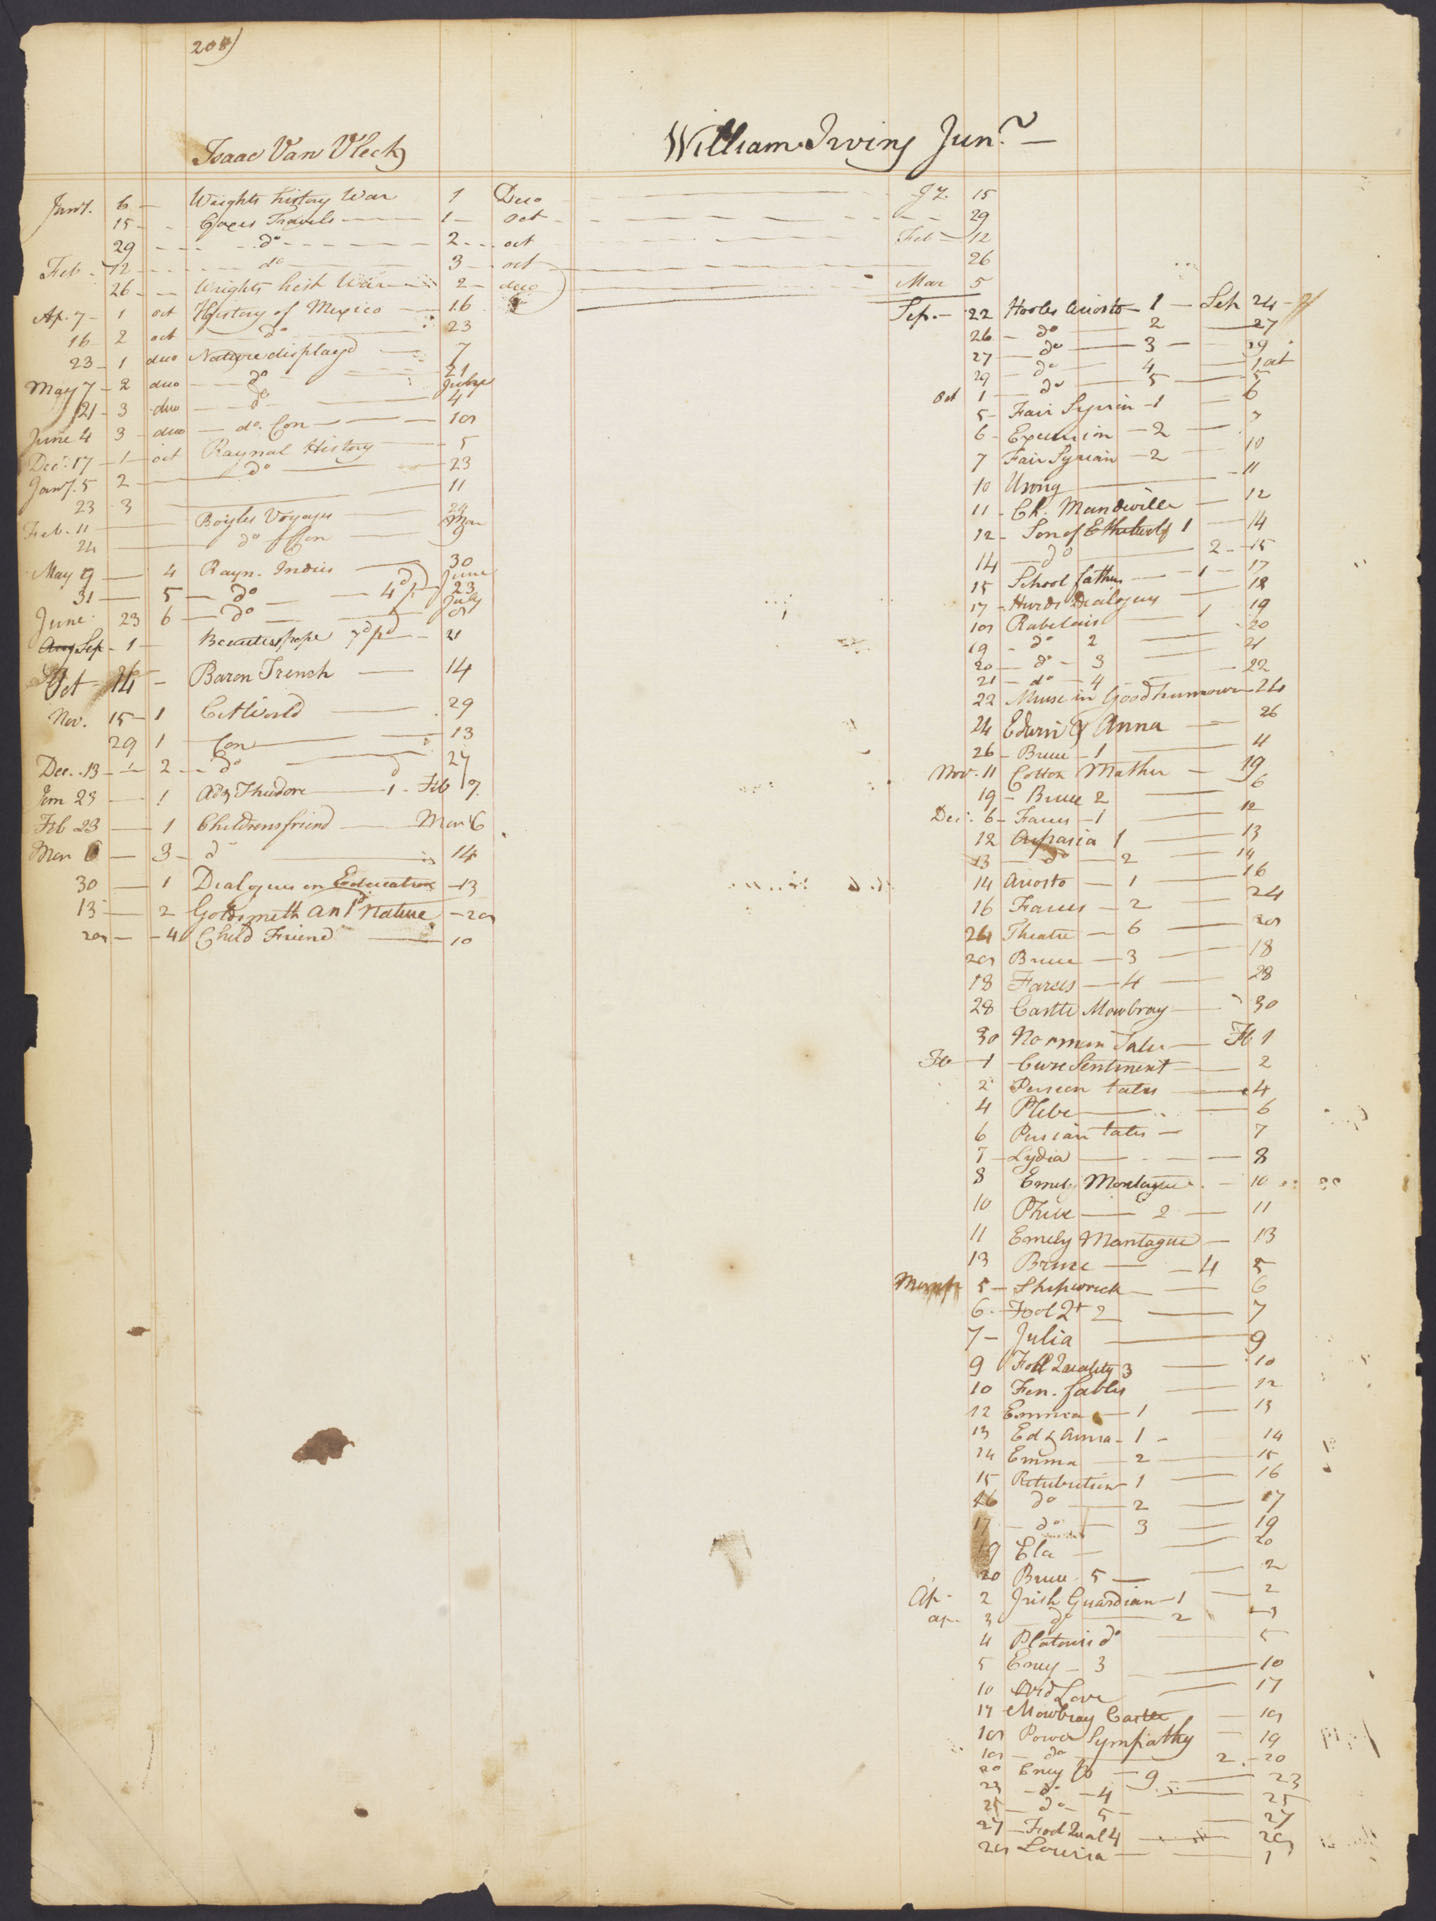 208)
Isaac Van Vleck
Jany. 6 — Wrights history War 1 Duo — J.y. 15
15 - - Coxes Travels — 1 — oct — 29
29 — do — 2 — oct — Feb — 12
Feb - 12 — do — 3 — oct — 26
26 — Wrights hist War — 2 — duo — Mar 5
Ap. 7 — 1 oct History of Mexico — 16
16 2 oct do 23
23 — 1 duo Nature displayd — 7
May 7 — 2 duo — do — 21
21 — 3 duo — do — June 4
June 4 3 - duo — do. Con — 18
Decr. 17 — 1 — oct Raynal History — 5
Jany. 5 2 — do — 23
23 3 — 11
Feb. 11 — Boyles Voyages — 24
24 — do Con — Mar 9
May 9 — 4 Rayn. Indies — 30
31 — 5 — do — 4d pd June 23
June 23 6 — do — July 8
Sep — 1 — Beauties pope 7d pd — 21
Oct 14 — Baron Trench — 14
Nov. 15 — 1 Cit World — 29
29 1 — Con — 13
Dec. 13 — 2 — do — 27
Jan 23 — 1 Ad. Theodore — 1 - Feb 7
Feb 23 — 1 Childrens friend — Mar 6
Mar 6 — 3 — do — 14
30 — 1 Dialogues on Education — 13
13 — 2 Goldsmith an'd Nature — 28
28 — 4 Child Friend — 10
William Irving Junr. —
Sep. — 22 Hooles Ariosto — 1 — Sep 24
26 — do — 2 — 27
27 — do — 3 — 29
29 — do — 4 — 1 oct
Oct 1 — do — 5 — 5
5 — Fair Syrian — 1 — 6
6 — Excursion — 2 — 7
7 Fair Syrian — 2 — 10
10 Usong — 11
11 — Ch. Mandeville — 12
12 — Son of Ethelwolf 1 — 14
14 — do — 2 — 15
15 School fathers — 1 — 17
17 — Hurds Dialogues — 18
18 Rabelais — 1 19
19 — do 2 — 20
20 — do — 3 — 21
21 — do — 4 — 22
22 Muse in Good humour — 24
24 Edwin & Anna — 26
26 — Bruce — 1 — 11
Nov. 11 Cotton Mather — 19
19 — Bruce 2 — 6
Decr. 6 — Farces — 1 — 12
12 Aspasia 1 — 13
13 — do — 2 — 14
14 Ariosto — 1 — 16
16 Farces — 2 — 24
24 Theatre — 6 — 28
28 Bruce — 3 — 18
18 Farces — 4 — 28
28 Castle Mowbray — 30
30 Norman Tales — Fb 1
Fb — 1 — Curse Sentiment — 2
2 Persian tales — 4
4 Phebe — 6
6 Persian tales — 7
7 — Lydia — 8
8 Emely Montague — 10
10 Phebe — 2 — 11
11 Emely Montague — 13
13 Bruce — 4 5
March 5 — Shipwreck — 6
6 — Fool Qt 2 — 7
7 — Julia — 9
9 Fool Quality 3 — 10
10 Fen. fables — 12
12 Emma — 1 — 13
13 Ed & Anna — 1 — 14
14 Emma — 2 — 15
15 Retribution 1 — 16
16 do — 2 — 17
17 — do — 3 — 19
19 Ela — 20
20 Bruce 5 — 2
Ap — 2 Irish Guardian — 1 — 2
ap — 3 — do — 2 — 3
4 Platonic do — 5
5 Ency — 3 — 10
10 Love — 17
17 Mowbray Castle — 18
18 Power Sympathy — 19
18 — do — 2 — 20
20 Ency — 9 — 23
23 — do — 4 — 25
25 — do — 5 — 27
27 — Fool Qual 4 — 28
28 Louisa — 1